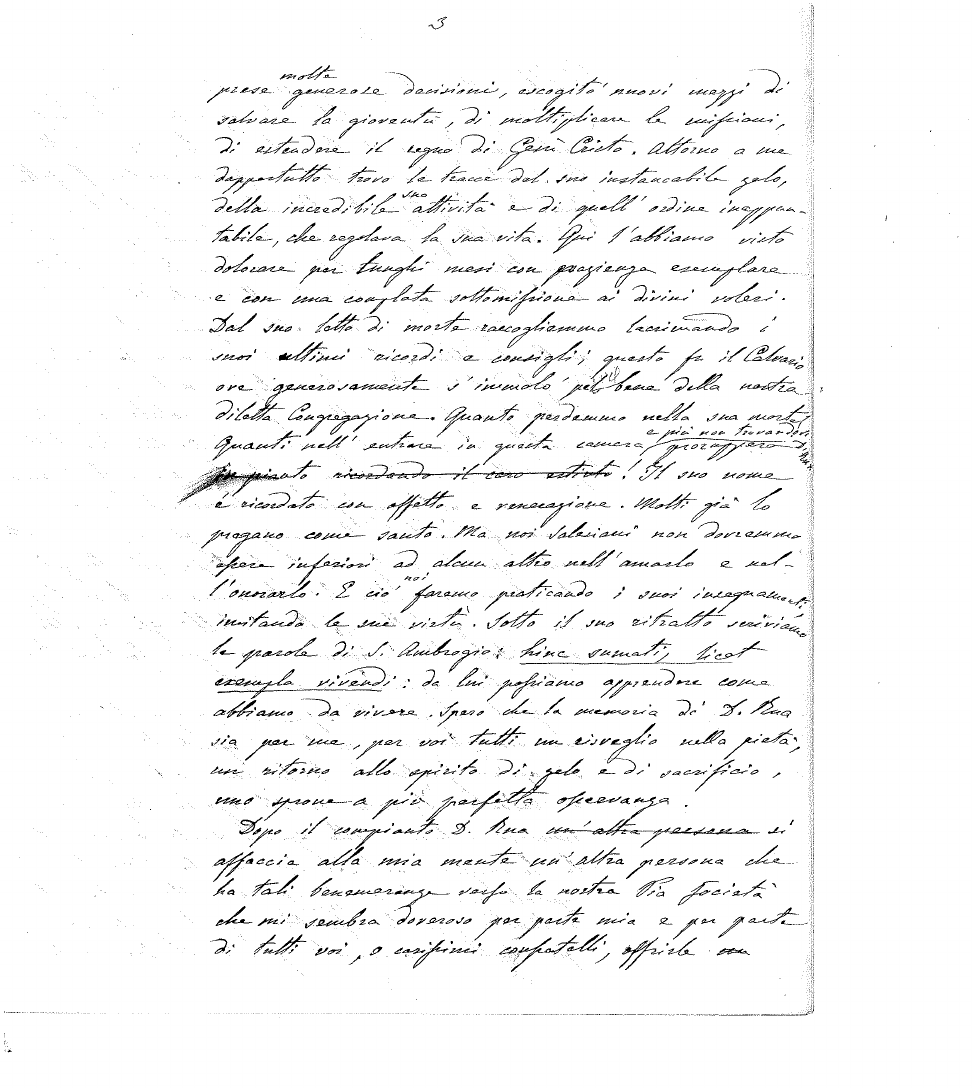 3
molte
prese generose decisioni, escogitò nuovi mezzi di
salvare la gioventù, di moltiplicare le missioni,
di estendere il regno di Gesù Cristo. Attorno a me
dappertutto trovo le tracce del suo instancabile zelo,
della incredibile sua attività e di quell'ordine inappun-
tabile, che regolava la sua vita. Qui l'abbiamo visto
dolorare per lunghi mesi con pazienza esemplare
e con una completa sottomissione ai divini voleri.
Dal suo letto di morte raccogliemmo lacrimando i
suoi ultimi ricordi e consigli; questo fu il Calvario
ove generosamente s'immolò pel bene della nostra
diletta Congregazione. Quanto perdemmo nella sua morte!
e più non trovandovi D. Rua
Quanti nell'entrare in questa camera proruppero
in pianto ricordando il caro estinto! Il suo nome
è ricordato con affetto e venerazione. Molti già lo
pregano come santo. Ma noi Salesiani non dovremmo
essere inferiori ad alcun altro nell'amarlo e nel-
l'onorarlo. E ciò noi faremo praticando i suoi insegnamenti,
imitando le sue virtù. Sotto il suo ritratto scriviamo
le parole di S. Ambrogio: hinc sumati, licet
exempla vivendi: da lui possiamo apprendere come
abbiamo da vivere. Spero che la memoria di D. Rua
sia per me, per voi tutti un risveglio nella pietà,
un ritorno allo spirito di zelo e di sacrificio,
uno sprone a più perfetta osservanza.
Dopo il compianto D. Rua un'altra persona si
affaccia alla mia mente un'altra persona che
ha tali benemerenze verso la nostra Pia Società
che mi sembra doveroso per parte mia e per parte
di tutti voi, o carissimi confratelli, offrirle un